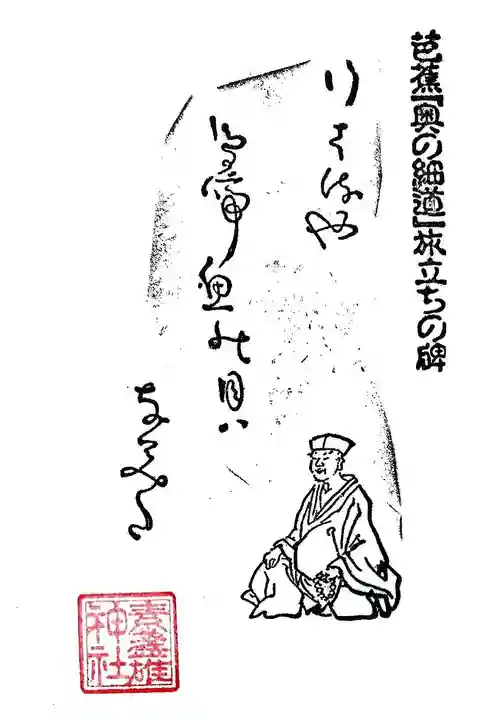 芭蕉『奥の細道』旅立ちの碑
行くはるや
鳥啼魚の目は
なみだ
素盞雄
神社